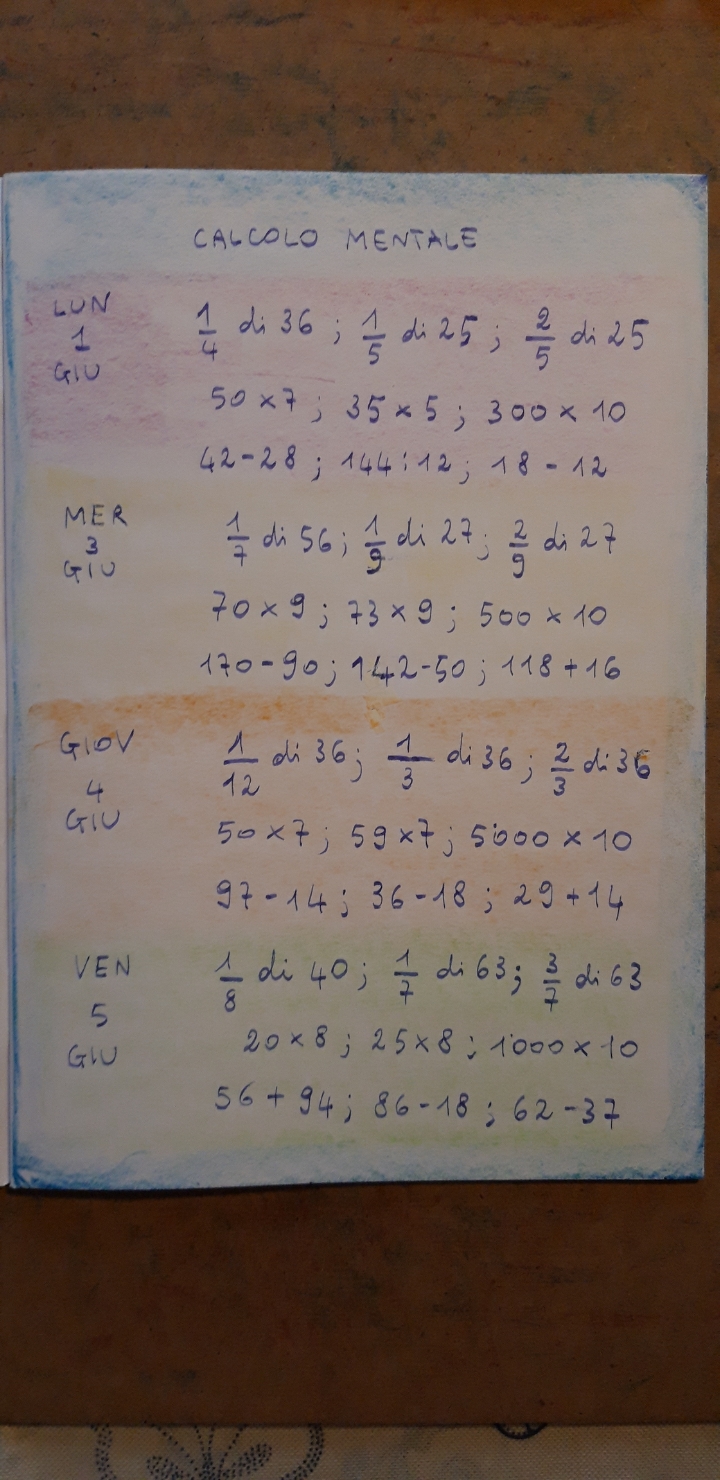 CALCOLO MENTALE
LUN
1
GIU
1/4 di 36 ; 1/5 di 25 ; 2/5 di 25
50 x 7 ; 35 x 5 ; 300 x 10
42 - 28 ; 144 : 12 ; 18 - 12
MER
3
GIU
1/7 di 56 ; 1/9 di 27 ; 2/9 di 27
70 x 9 ; 73 x 9 ; 500 x 10
170 - 90 ; 142 - 50 ; 118 + 16
GIOV
4
GIU
1/12 di 36 ; 1/3 di 36 ; 2/3 di 36
50 x 7 ; 59 x 7 ; 5'000 x 10
97 - 14 ; 36 - 18 ; 29 + 14
VEN
5
GIU
1/8 di 40 ; 1/7 di 63 ; 3/7 di 63
20 x 8 ; 25 x 8 ; 1'000 x 10
56 + 94 ; 86 - 18 ; 62 - 37